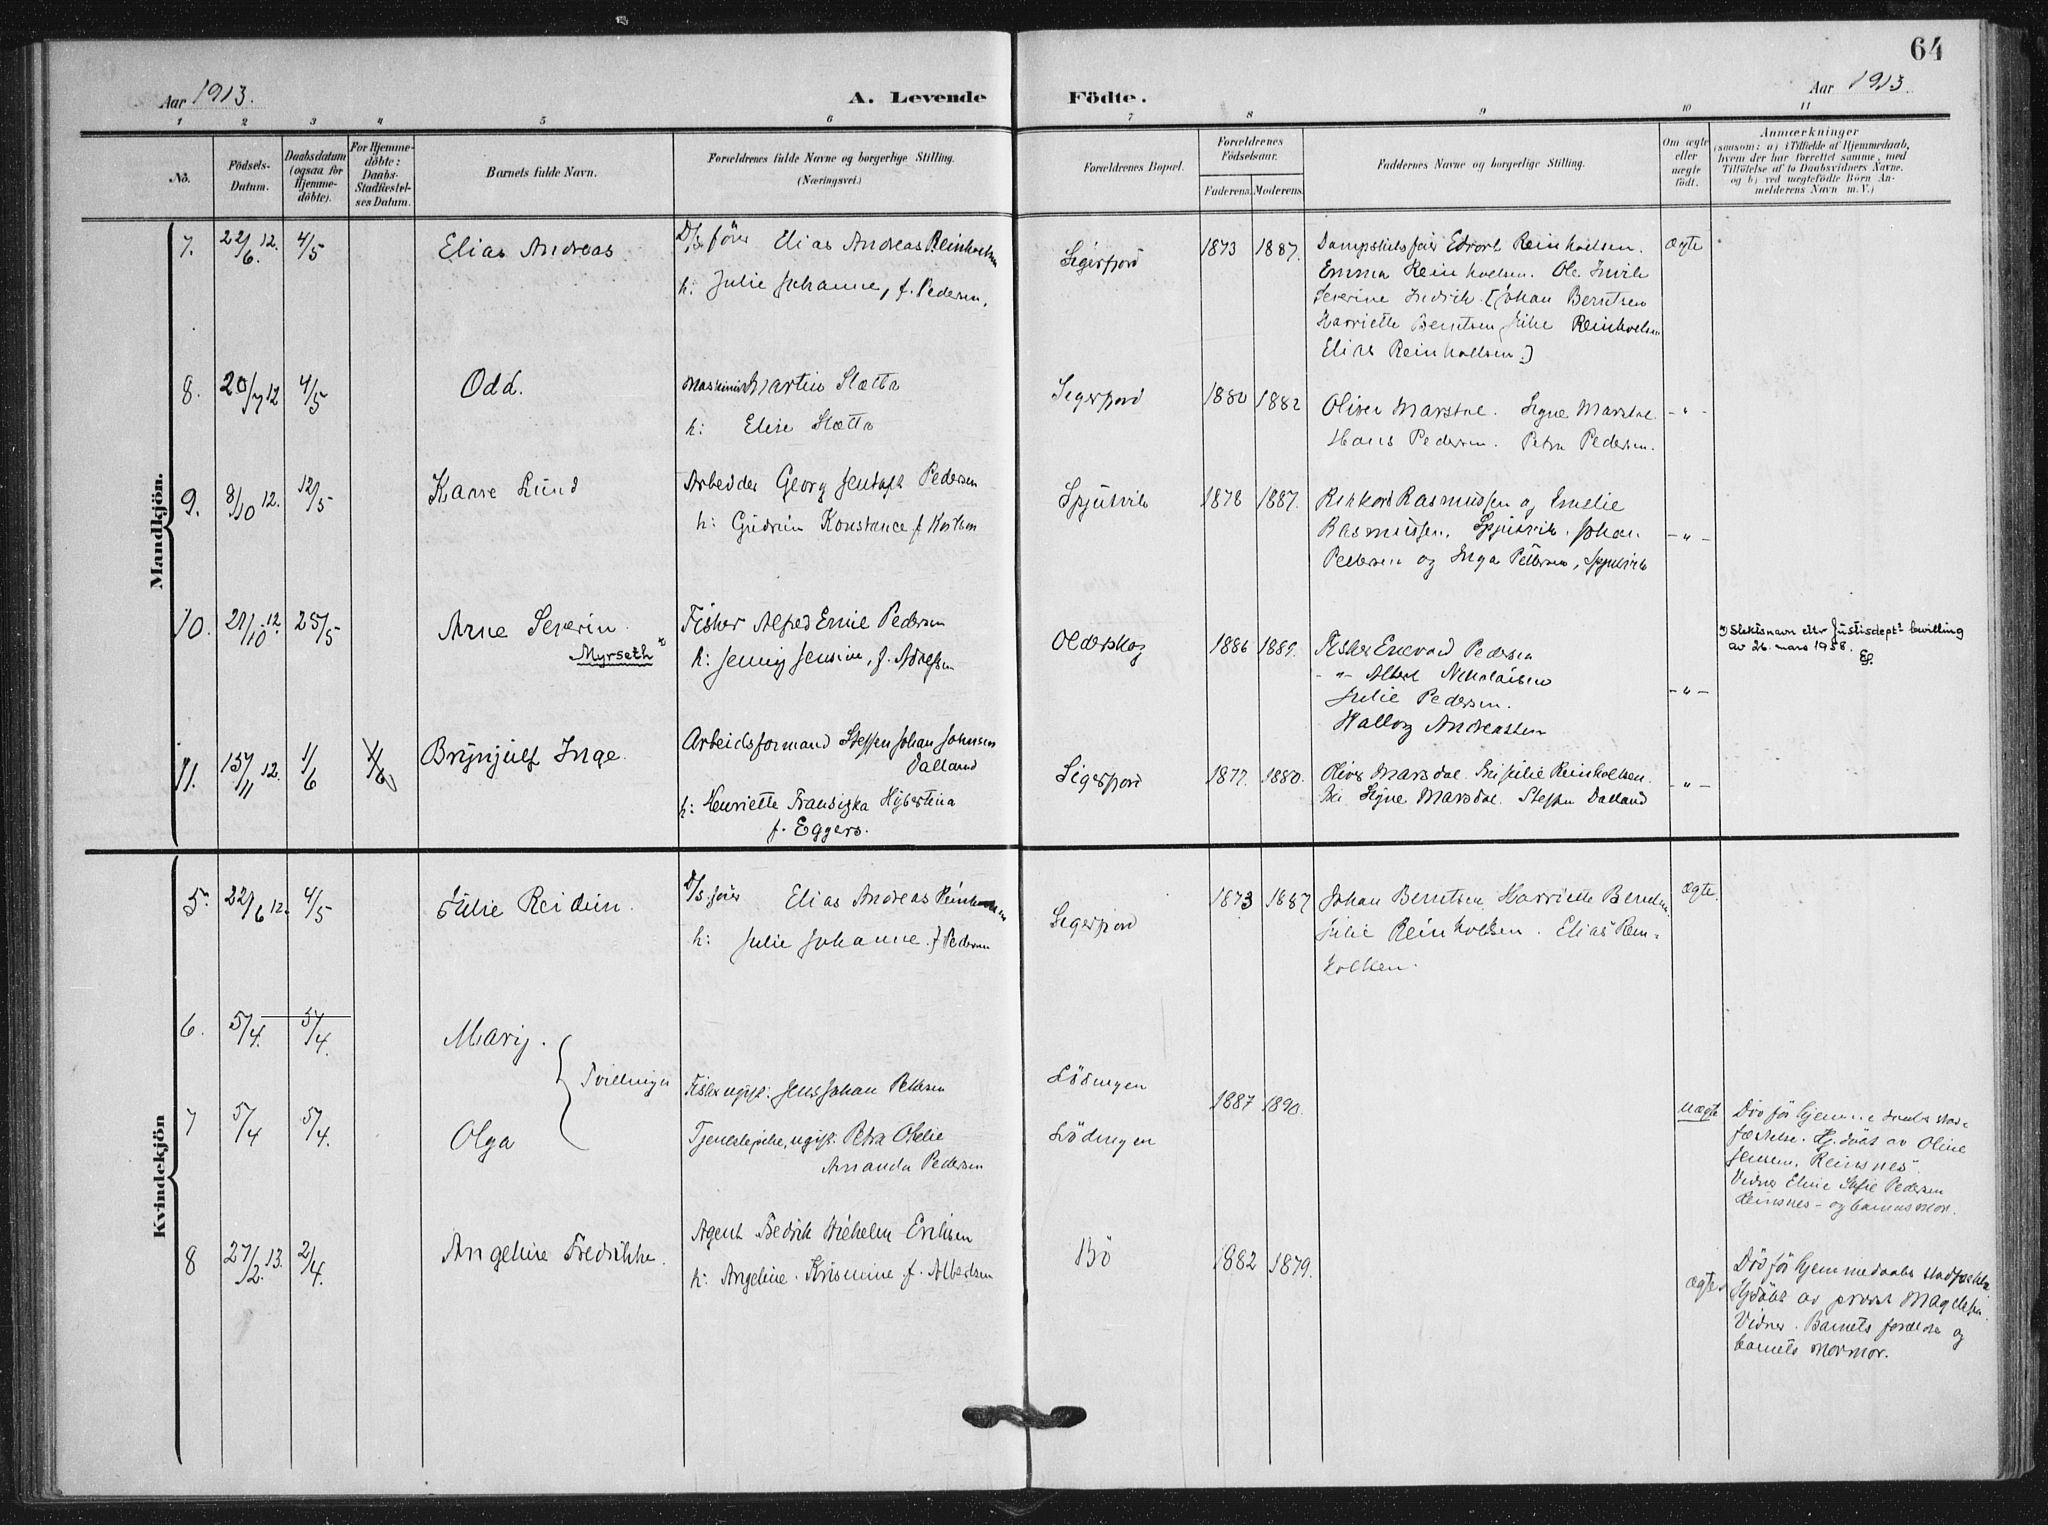 64
Aar 1913.
A. Levende
Födte.
Aar 1913.
1 2 3 4 5 6 7 8 9 10 11
No.
Födsels-Datum.
Daabsdatum (ogsaa for Hjemme-döbte).
For Hjemme-döbte: Daabs-Stadfæstel-ses Datum.
Barnets fulde Navn.
Forældrenes fulde Navne og borgerlige Stilling.
(Næringsvei.)
Forældrenes Bopæl.
Forældrenes Födselsaar.
Faderens. Moderens.
Faddernes Navne og borgerlige Stilling.
Om ægte eller uægte födt.
Anmærkninger
(saasom: a) i Tilfælde af Hjemmedaab, hvem der har forrettet samme, med Tilföielse af to Daabsvidners Navne. og b) ved uægtefödte Börn An-melderens Navn m. V.)
Mandkjön.
7. 22/6 12. 4/5 Elias Andreas D/s förer Elias Andreas Reinholtsen
h: Julie Johanne, f. Pedersen,
Sigerfjord 1873 1887.
Dampskibsförer Edvart Reinholtsen.
Emma Reinholtsen. Ole
Severine [Johan Berntsen
Harriette Berntsen Julie Reinholtsen
Elias Reinholtsen.]
ægte
8. 20/7 12 4/5 Odd. Maskinist Martin Slætta
h: Elise Slætta
Sigerfjord 1880 1882
Oliver Marsdal. Signe Marsdal.
Hans Pedersen. Petra Pedersen.
-"-
9. 8/10 12. 12/5 Kaare Lund Arbeider Georg Pedersen
h: Gudrun Konstance f.
Spjutvik 1878 1887.
Rikkard Rasmussen og Emelie
Rasmussen, Spjutvik. Johan
Pedersen og Inga Pettersen, Spjutvik
-"-
10. 21/10 12. 25/5 Arne Severin.
Myrseth *)
Fisker Alfred Emil Pedersen
h: Jenny Jensine, f.
Olderskog 1886 1889.
Fisker Enevold Pedersen
-"- Albert Nikolaisen
Julie Pedersen.
Andreassen
-"-
*) Slektsnavn etter Justisdept⁸ bevilling
av 26. mars 1958.
11. 15/11 12. 1/6 1/6 Brynjulf Inge. Arbeidsformand Steffen Johan Johnsen
Dalland
h: Henriette Fransiska Hybertina
f. Eggers.
Sigerfjord 1877. 1880.
Oliver Marsdal. Fru Julie Reinholtsen.
Fru Signe Marsdal. Steffen Dalland
-"-
Kvindekjön
5. 22/6 12. 4/5 Julie Reidun. D/s. förer Elias Andreas Reinholtsen
h: Julie Johanne. f Pedersen
Sigerfjord 1873 1887
Johan Berntsen. Harriette Berntsen.
Julie Reinholtsen. Elias Rein-
holtsen.
ægte.
6. 5/4. 5/4. Mary.
Tvillinger
Fisker ugift: Jens Johan Pettersen
Lödingen
1887 1890.
7 5/4 5/4. Olga
Tjenestepike, ugift. Petra Otelie
Amanda Pedersen
Lödingen
uægte
Död för hjemmedaabs stad-
fæstelse. Hj. döbt av Oline
Jensen, Reinsnes.
Vidner Eline Sofie Pedersen
Reinsnes - og barnets mor.
8 27/2. 13. 2/4. Angeline Fredrikke. Agent Fredrik Wilhelm Eriksen
h: Angeline. Krismine f. Albertsen
Bö 1882 1879.
ægte.
Död för hjemmedaabs stadfæstelse
Hjdöbt av provst Magelssen.
Vidner. Barnets forældre og
barnets mormor.